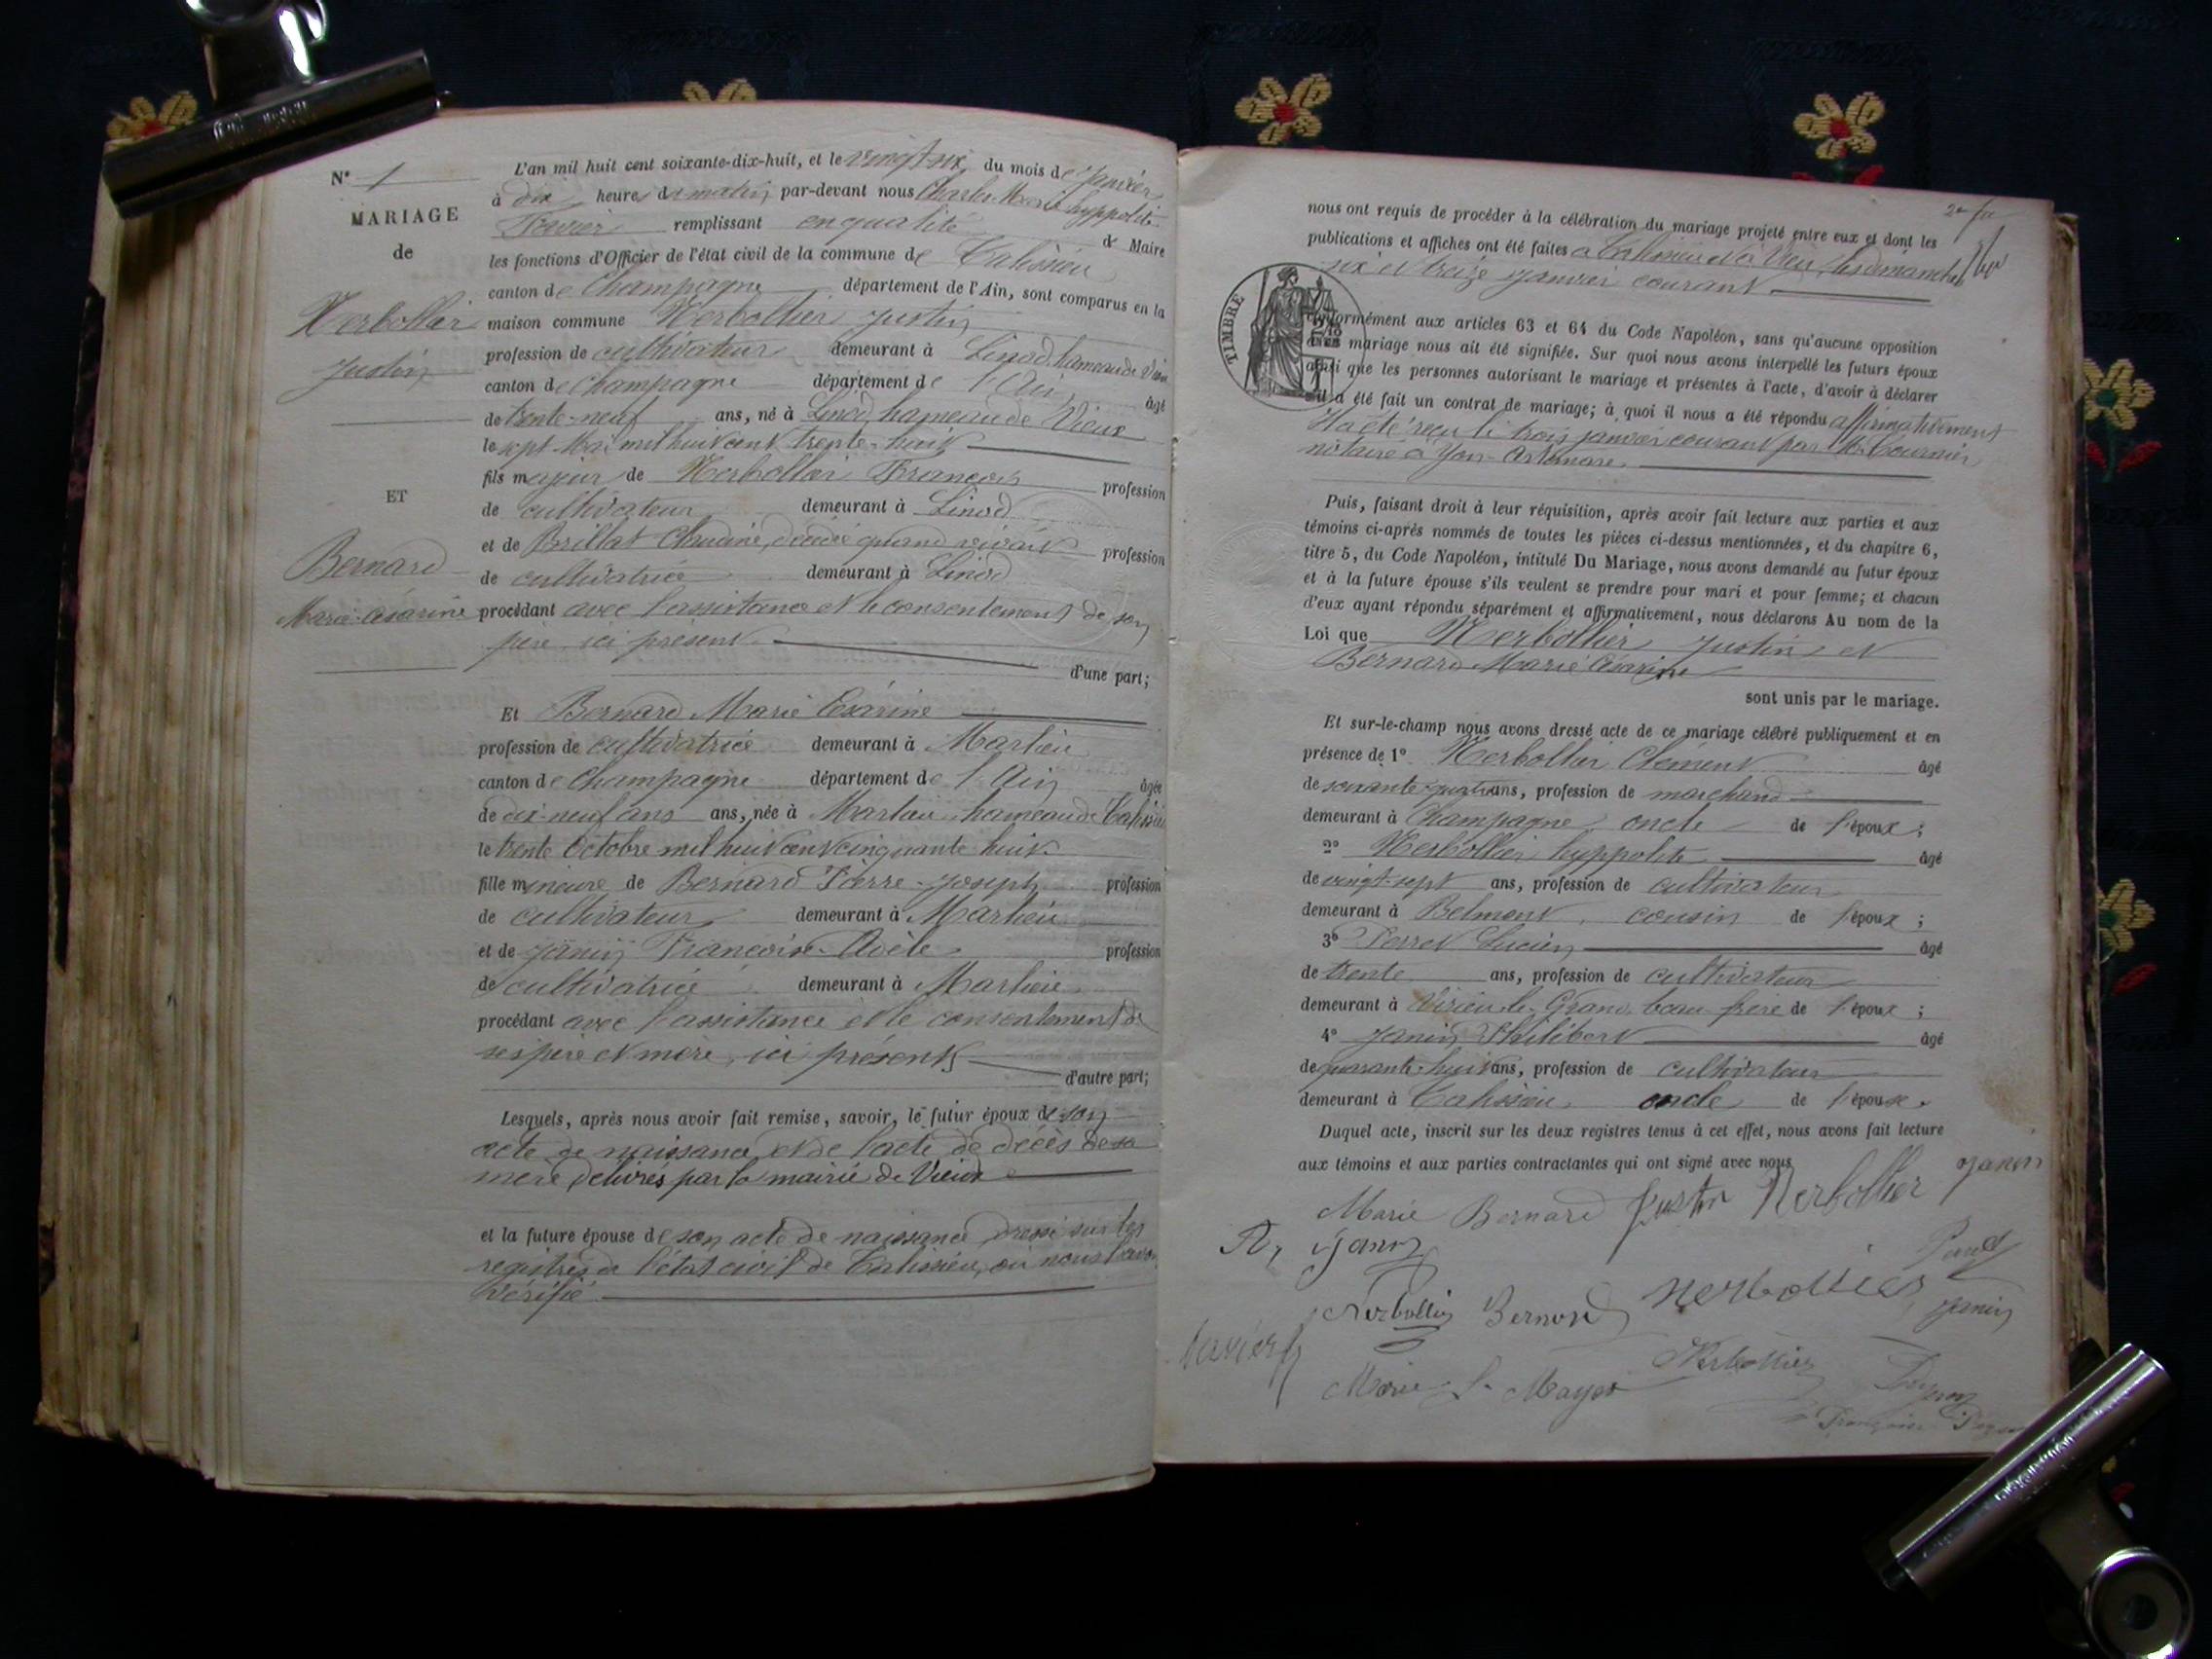 N° 1
MARIAGE
de
Nerbollier
Justin
ET
Bernard
Marie-Césarine
L'an mil huit cent soixante-dix-huit, et le vingt six du mois de Janvier
à dix heures du matin par-devant nous Charles Marie hyppolite
remplissant en qualité de Maire
les fonctions d'Officier de l'état civil de la commune de Talissieu
canton de Champagne département de l'Ain, sont comparus en la
maison commune Nerbollier Justin
profession de cultivateur demeurant à Linod hameau de Vieu
canton de Champagne département de l'Ain âgé
de trente-neuf ans, né à Linod, hameau de Vieux
le sept Mai mil huit cent trente-huit
fils majeur de Nerbollier François profession
de cultivateur demeurant à Linod
et de Brillat Claudine, décédée quand vivait profession
de cultivatrice demeurant à Linod
procédant avec l'assistance et le consentement de son
père ici présent
d'une part;
Et Bernard Marie Césarine
profession de cultivatrice demeurant à Marlieu
canton de Champagne département de l'Ain âgée
de dix-neuf ans ans, née à Marlieu hameau de Talissieu
le trente Octobre mil huit cent cinquante huit
fille mineure de Bernard Pierre-Joseph profession
de cultivateur demeurant à Marlieu
et de Janin Françoise-Adèle profession
de cultivatrice demeurant à Marlieu
procédant avec l'assistance et le consentement de
ses père et mère, ici présents
d'autre part;
Lesquels, après nous avoir fait remise, savoir, le futur époux de son
acte de naissance et de l'acte de décès de sa
mère délivrés par la mairie de Vieux
et la future épouse de son acte de naissance dressé sur les
registres de l'état civil de Talissieu, où nous l'avons
vérifié
nous ont requis de procéder à la célébration du mariage projeté entre eux et dont les
publications et affiches ont été faites à Talissieu et à Vieu, les dimanches
six et treize janvier courant
TIMBRE
conformément aux articles 63 et 64 du Code Napoléon, sans qu'aucune opposition
au mariage nous ait été signifiée. Sur quoi nous avons interpellé les futurs époux
ainsi que les personnes autorisant le mariage et présentes à l'acte, d'avoir à déclarer
s'il a été fait un contrat de mariage; à quoi il nous a été répondu affirmativement
Il a été reçu le trois janvier courant par Me
notaire à Yon-Artemare
Puis, faisant droit à leur réquisition, après avoir fait lecture aux parties et aux
témoins ci-après nommés de toutes les pièces ci-dessus mentionnées, et du chapitre 6,
titre 5, du Code Napoléon, intitulé Du Mariage, nous avons demandé au futur époux
et à la future épouse s'ils veulent se prendre pour mari et pour femme; et chacun
d'eux ayant répondu séparément et affirmativement, nous déclarons Au nom de la
Loi que Nerbollier Justin et
Bernard Marie Césarine
sont unis par le mariage.
Et sur-le-champ nous avons dressé acte de ce mariage célébré publiquement et en
présence de 1° Nerbollier Clément âgé
de soixante-quatre ans, profession de marchand
demeurant à Champagne oncle de l'époux;
2° Nerbollier hyppolite âgé
de vingt-sept ans, profession de cultivateur
demeurant à Belmont, cousin de l'époux;
3° Perret Lucien âgé
de trente ans, profession de cultivateur
demeurant à Virieu-le-Grand beau frère de l'époux;
4° Janin Philibert âgé
de quarante-huit ans, profession de cultivateur
demeurant à Talissieu oncle de l'épouse.
Duquel acte, inscrit sur les deux registres tenus à cet effet, nous avons fait lecture
aux témoins et aux parties contractantes qui ont signé avec nous
Marie Bernard Justin Nerbollier Janin
Janin
Nerbollier Bernard Nerbollier Janin
Marie Nerbollier